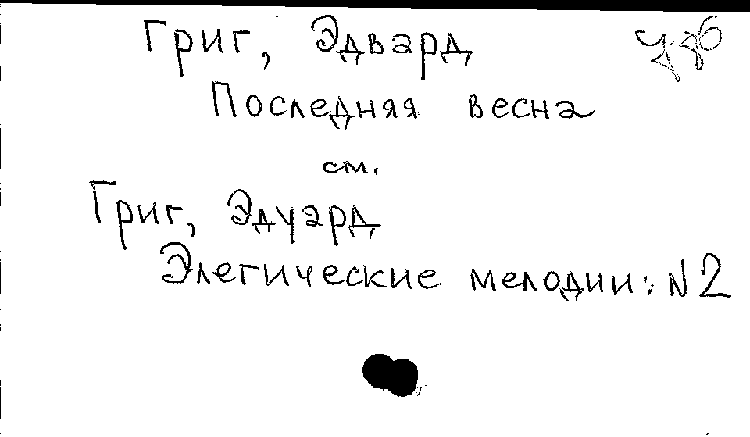 Григ, Эдвард
Последняя весна
см.
Григ, Эдуард
Элегические мелодии: №2